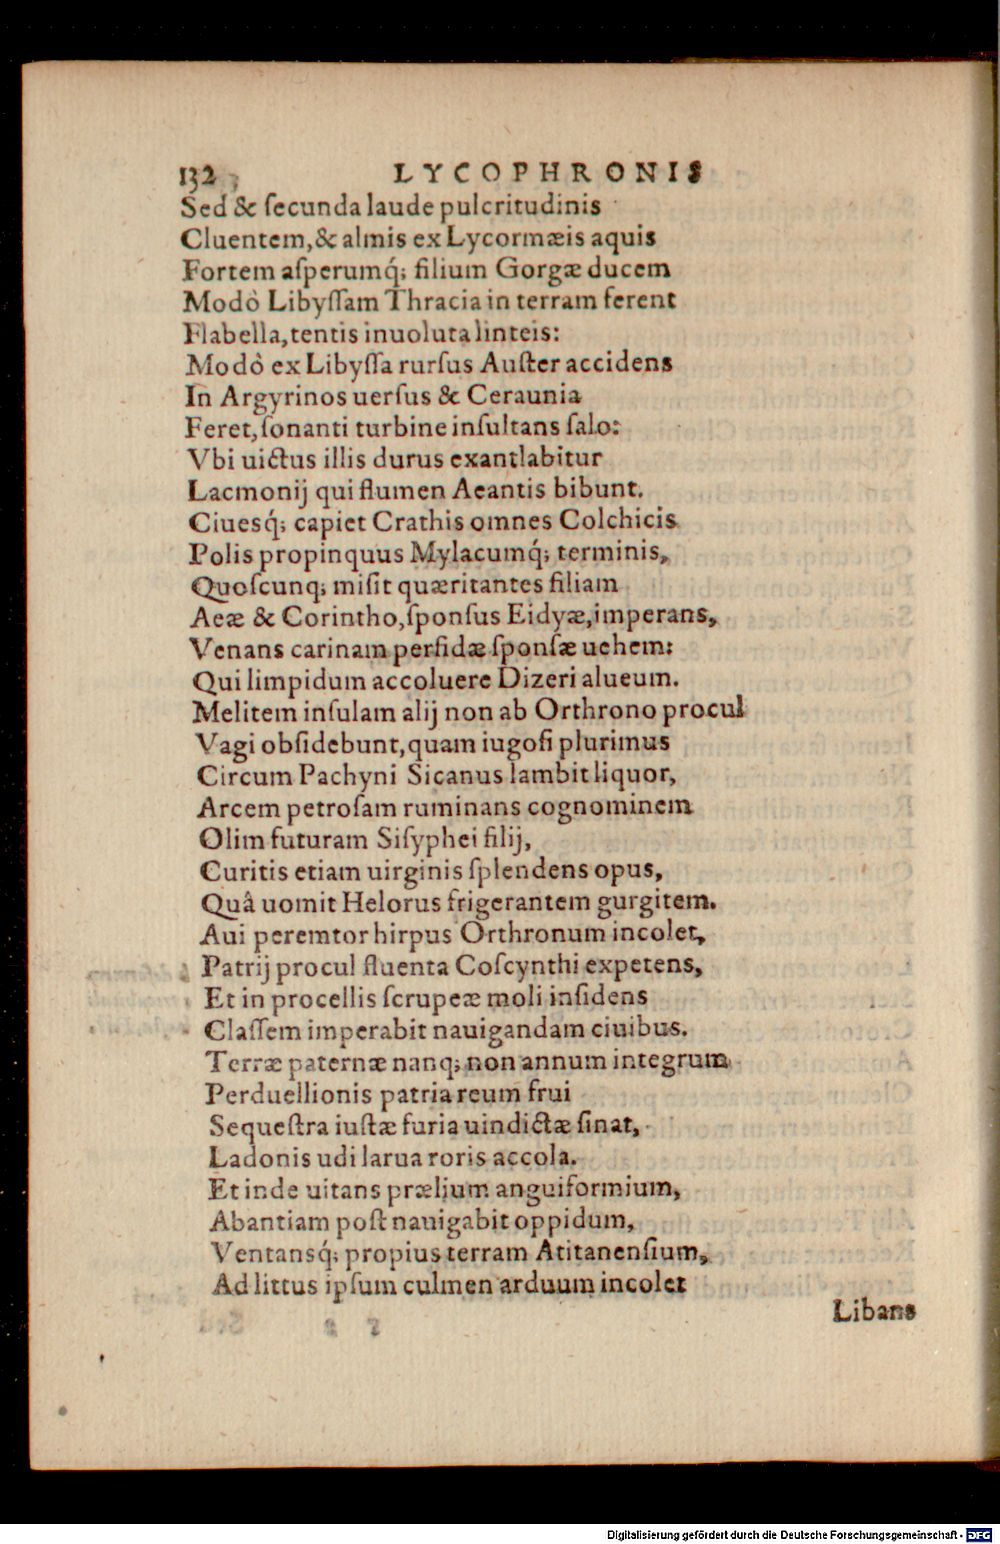 132 LYCOPHRONIS
Sed & ſecunda laude pulcritudinis
Cluentem, & almis ex Lycormæis aquis
Fortem aſperumq́; filium Gorgæ ducem
Modò Libyſſam Thracia in terram ferent
Flabella, tentis inuoluta linteis:
Modò ex Libyſſa rurſus Auſter accidens
In Argyrinos uerſus & Ceraunia
Feret, ſonanti turbine inſultans ſalo:
Vbi uictus illis durus exantlabitur
Lacmonij qui flumen Aeantis bibunt.
Ciuesq́; capiet Crathis omnes Colchicis
Polis propinquus Mylacumq́; terminis,
Quoſcunq; miſit quæritantes filiam
Aeæ & Corintho, ſponſus Eidyæ, imperans,
Venans carinam perfidæ ſponſæ uehem:
Qui limpidum accoluere Dizeri alueum.
Melitem inſulam alij non ab Orthrono procul
Vagi obſidebunt, quam iugoſi plurimus
Circum Pachyni Sicanus lambit liquor,
Arcem petroſam ruminans cognominem
Olim futuram Siſyphei filij,
Curitis etiam uirginis ſplendens opus,
Quâ uomit Helorus frigerantem gurgitem.
Aui peremtor hirpus Orthronum incolet,
Patrij procul fluenta Coſcynthi expetens,
Et in procellis ſcrupeæ moli inſidens
Claſſem imperabit nauigandam ciuibus.
Terræ paternæ nanq; non annum integrum
Perduellionis patria reum frui
Sequeſtra iuſtæ furia uindictæ ſinat,
Ladonis udi larua roris accola.
Et inde uitans prælium anguiformium,
Abantiam poſt nauigabit oppidum,
Ventansq́; propius terram Atitanenſium,
Ad littus ipſum culmen arduum incolet
Libans
Digitalisierung gefördert durch die Deutsche Forschungsgemeinschaft - DFG